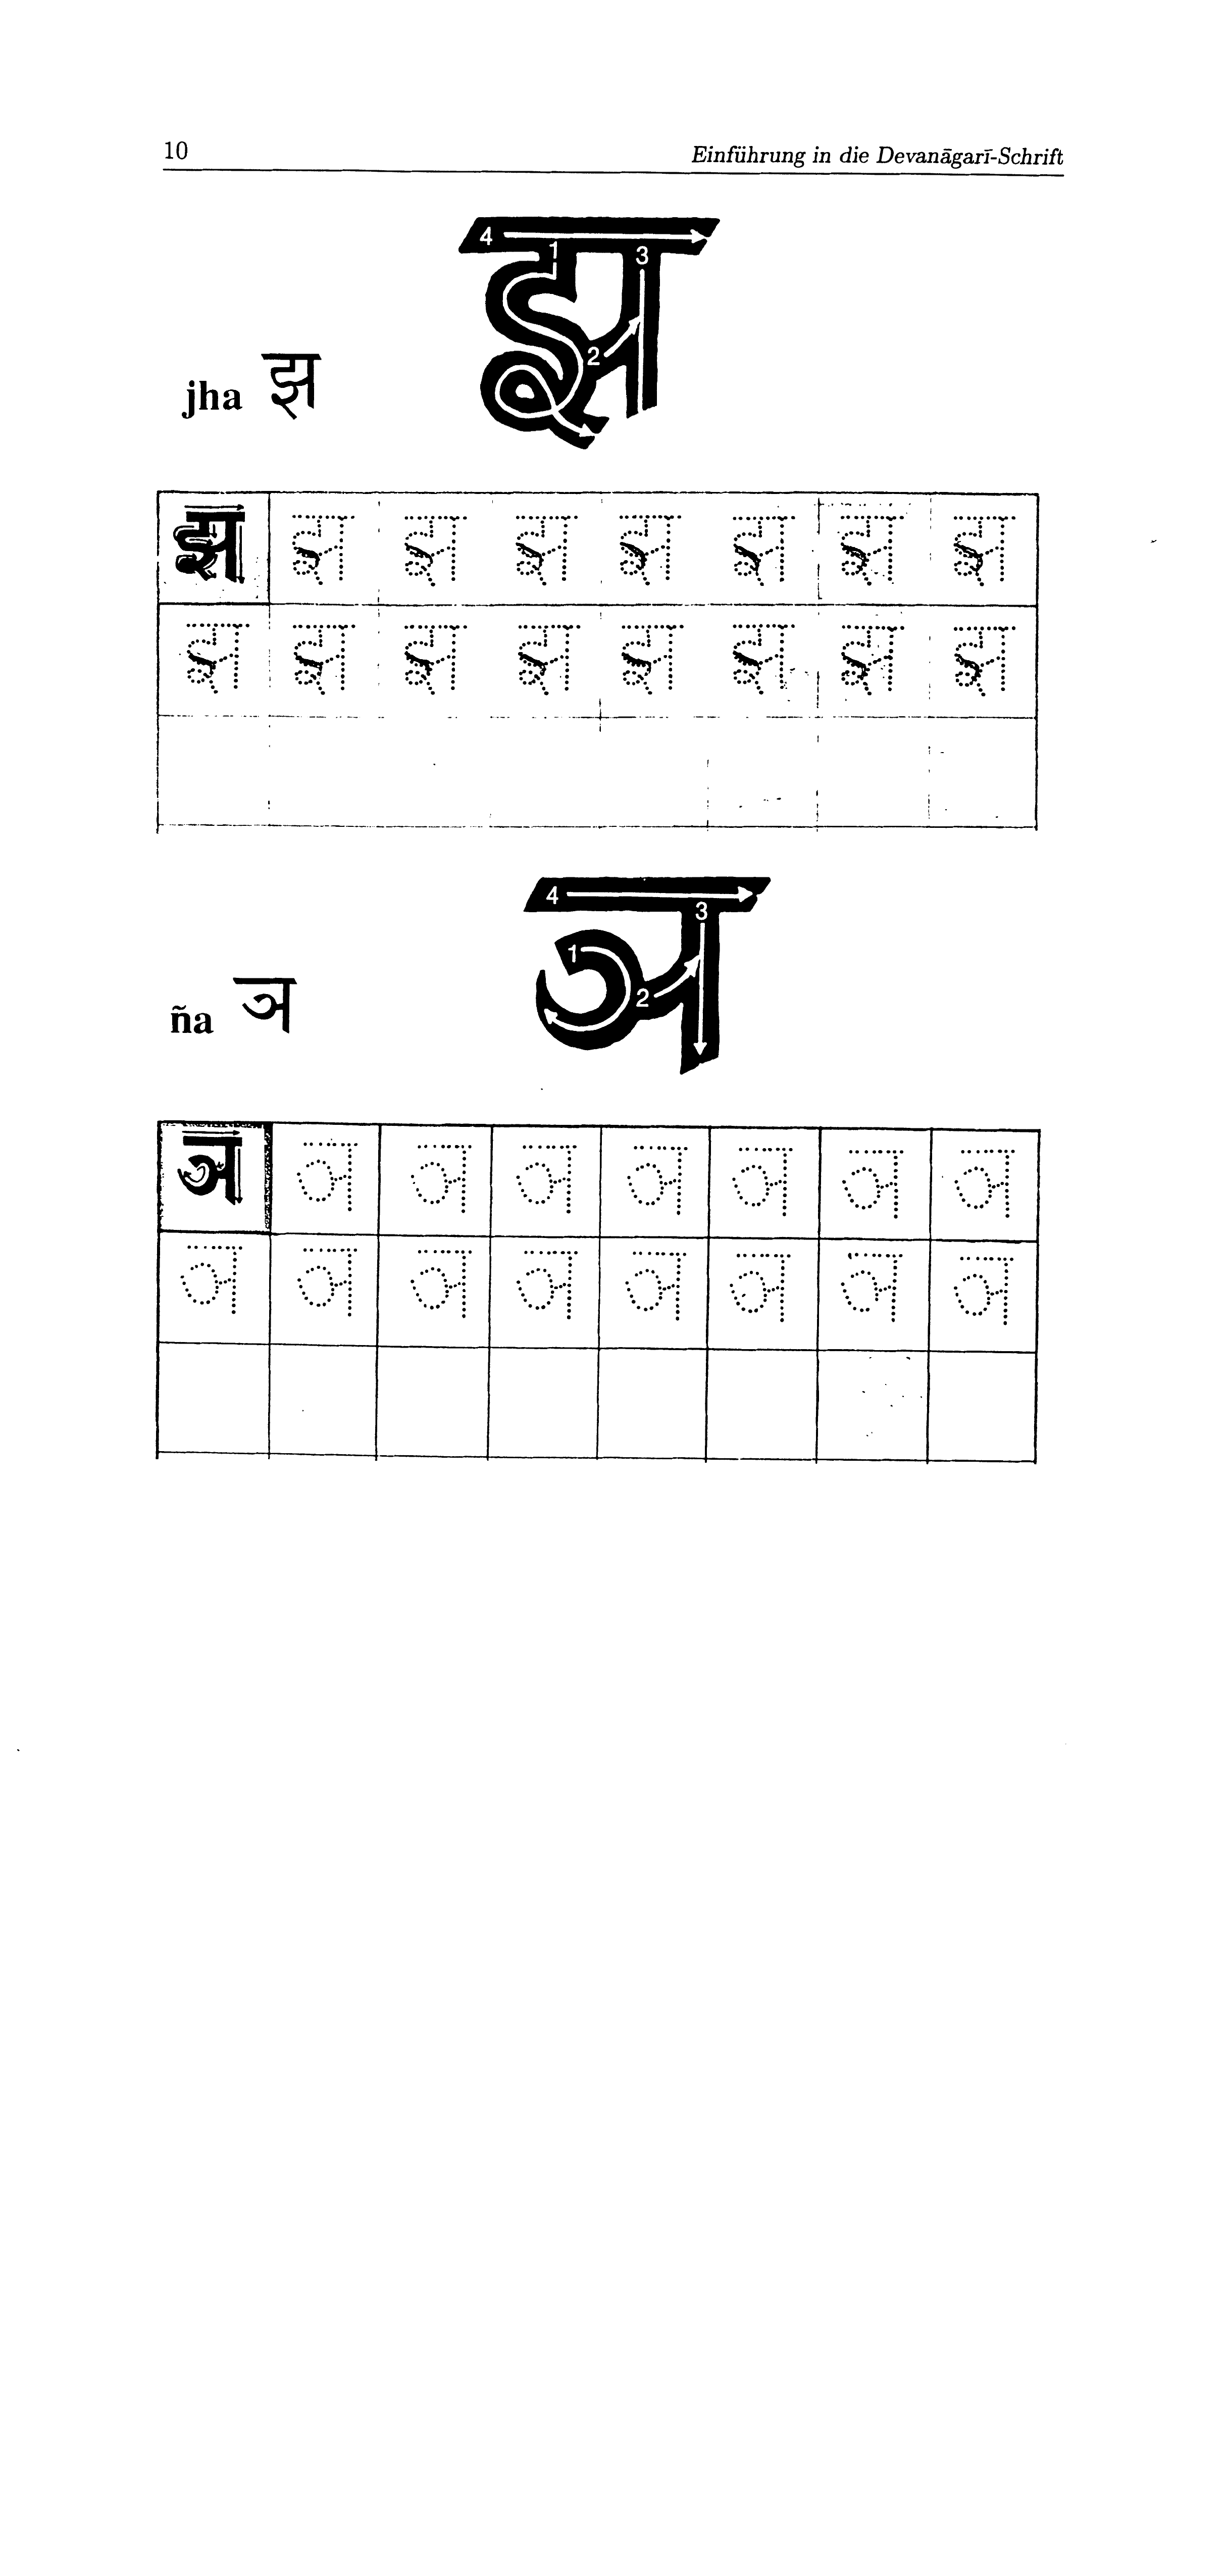 10 Einführung in die Devanāgarī-Schrift
4 1 3 2
jha झ
झ झ झ झ झ झ झ झ
झ झ झ झ झ झ झ झ
4 3 1 2
ña ञ
ञ ञ ञ ञ ञ ञ ञ ञ
ञ ञ ञ ञ ञ ञ ञ ञ